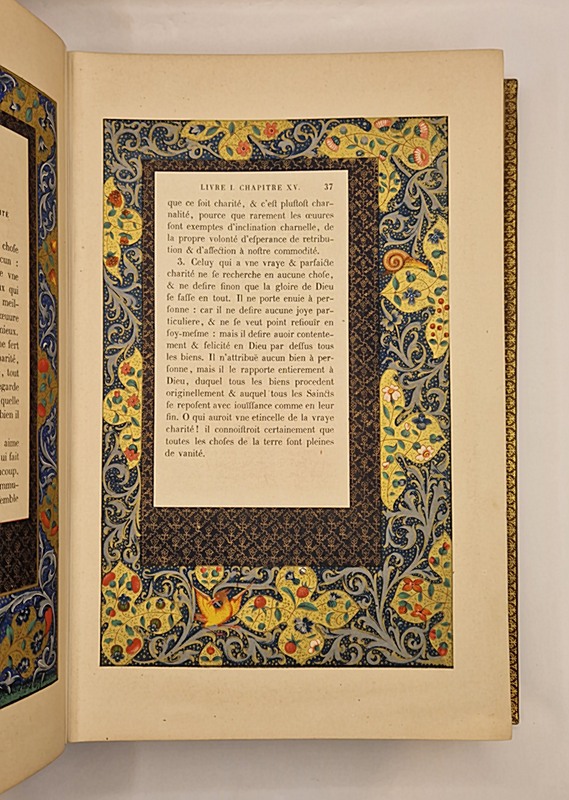 TRE
chose
cun :
e vne
x qui
meil-
œuure
nieux.
ne fert
parité,
, tout
garde
quelle
bien il
aime
ui fait
ucoup.
mmu-
emble
LIVRE I. CHAPITRE XV. 37
que ce ſoit charité, & c'eſt pluſtoſt char-
nalité, pource que rarement les œuures
ſont exemptes d'inclination charnelle, de
la propre volonté d'eſperance de retribu-
tion & d'affection à noſtre commodité.
3. Celuy qui a vne vraye & parfaicte
charité ne ſe recherche en aucune choſe,
& ne deſire ſinon que la gloire de Dieu
ſe faſſe en tout. Il ne porte enuie à per-
ſonne : car il ne deſire aucune joye par-
ticuliere, & ne ſe veut point reſiouïr en
ſoy-meſme : mais il deſire auoir contente-
ment & felicité en Dieu par deſſus tous
les biens. Il n'attribuë aucun bien à per-
ſonne, mais il le rapporte entierement à
Dieu, duquel tous les biens procedent
originellement & auquel tous les Saincts
ſe repoſent avec iouïſſance comme en leur
fin. O qui auroit vne etincelle de la vraye
charité! il connoiſtroit certainement que
toutes les choſes de la terre ſont pleines
de vanité.